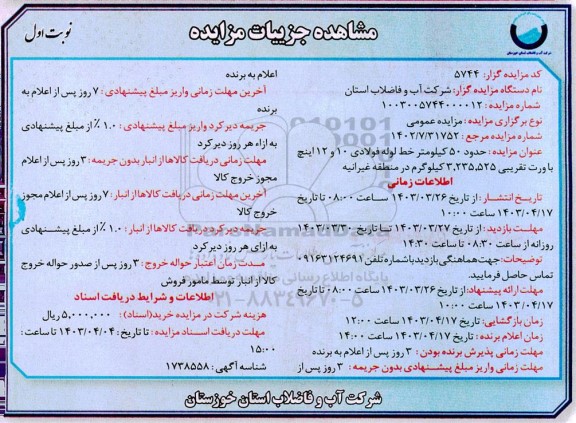 مشاهده جزییات مزایده
نوبت اول
شرکت آب و فاضلاب استان خوزستان
کد مزایده گزار: ۵۷۴۴
نام دستگاه مزایده گزار: شرکت آب و فاضلاب استان
شماره مزایده : ۱۰۰۳۰۰۵۷۴۴۰۰۰۰۱۲
نوع برگزاری مزایده : مزایده عمومی
شماره مزایده مرجع : ۱۴۰۲/۷/۳۱۷۵۲
عنوان مزایده : حدود ۵۰ کیلومتر خط لوله فولادی ۱۰ و ۱۲ اینچ
با ورت تقریبی ۳,۲۳۵,۵۲۵ کیلوگرم در منطقه غیزانیه
اطلاعات زمانی
تاریخ انتشار : از تاریخ ۱۴۰۳/۰۳/۲۶ ساعت ۰۸:۰۰ تا تاریخ
۱۴۰۳/۰۴/۱۷ ساعت ۱۰:۰۰
مهلت بازدید : از تاریخ ۱۴۰۳/۰۳/۲۷ تا تاریخ ۱۴۰۳/۰۳/۳۰
روزانه از ساعت ۰۸:۳۰ تا ساعت ۱۴:۳۰
توضیحات: جهت هماهنگی بازدید با شماره تلفن ۰۹۱۶۳۱۲۴۶۹۱
تماس حاصل فرمایید.
مهلت ارائه پیشنهاد: از تاریخ ۱۴۰۳/۰۳/۲۶ ساعت ۰۸:۰۰ تا تاریخ
۱۴۰۳/۰۴/۱۷ ساعت ۱۰:۰۰
زمان بازگشایی: تاریخ ۱۴۰۳/۰۴/۱۷ ساعت ۱۲:۰۰
زمان اعلام برنده : تاریخ ۱۴۰۳/۰۴/۱۷ ساعت ۱۴:۰۰
مهلت زمانی پذیرش برنده بودن : ۳ روز پس از اعلام به برنده
مهلت زمانی واریز مبلغ پیشنهادی بدون جریمه : ۳ روز پس از
اعلام به برنده
آخرین مهلت زمانی واریز مبلغ پیشنهادی : ۷ روز پس از اعلام به
برنده
جریمه دیرکرد واریز مبلغ پیشنهادی : ۱.۰ ٪ از مبلغ پیشنهادی
به ازاء هر روز دیرکرد
مهلت زمانی دریافت کالاها از انبار بدون جریمه : ۳ روز پس از اعلام
مجوز خروج کالا
آخرین مهلت زمانی دریافت کالاها از انبار : ۷ روز پس از اعلام مجوز
خروج کالا
جریمه دیرکرد دریافت کالاها از انبار : ۱.۰ ٪ از مبلغ پیشنهادی
به ازای هر روز دیرکرد
مدت زمان اعتبار حواله خروج : ۳ روز پس از صدور حواله خروج
کالا از انبار توسط مامور فروش
اطلاعات و شرایط دریافت اسناد
هزینه شرکت در مزایده خرید(اسناد) : ۵,۰۰۰,۰۰۰ ریال
مهلت دریافت اسناد مزایده : تا تاریخ : ۱۴۰۳/۰۴/۰۴ تا ساعت :
۱۵:۰۰
شناسه آگهی : ۱۷۳۸۵۵۸
۰۲۱-۸۸۳۴۹۶۷۰-۵
شرکت آب و فاضلاب استان خوزستان